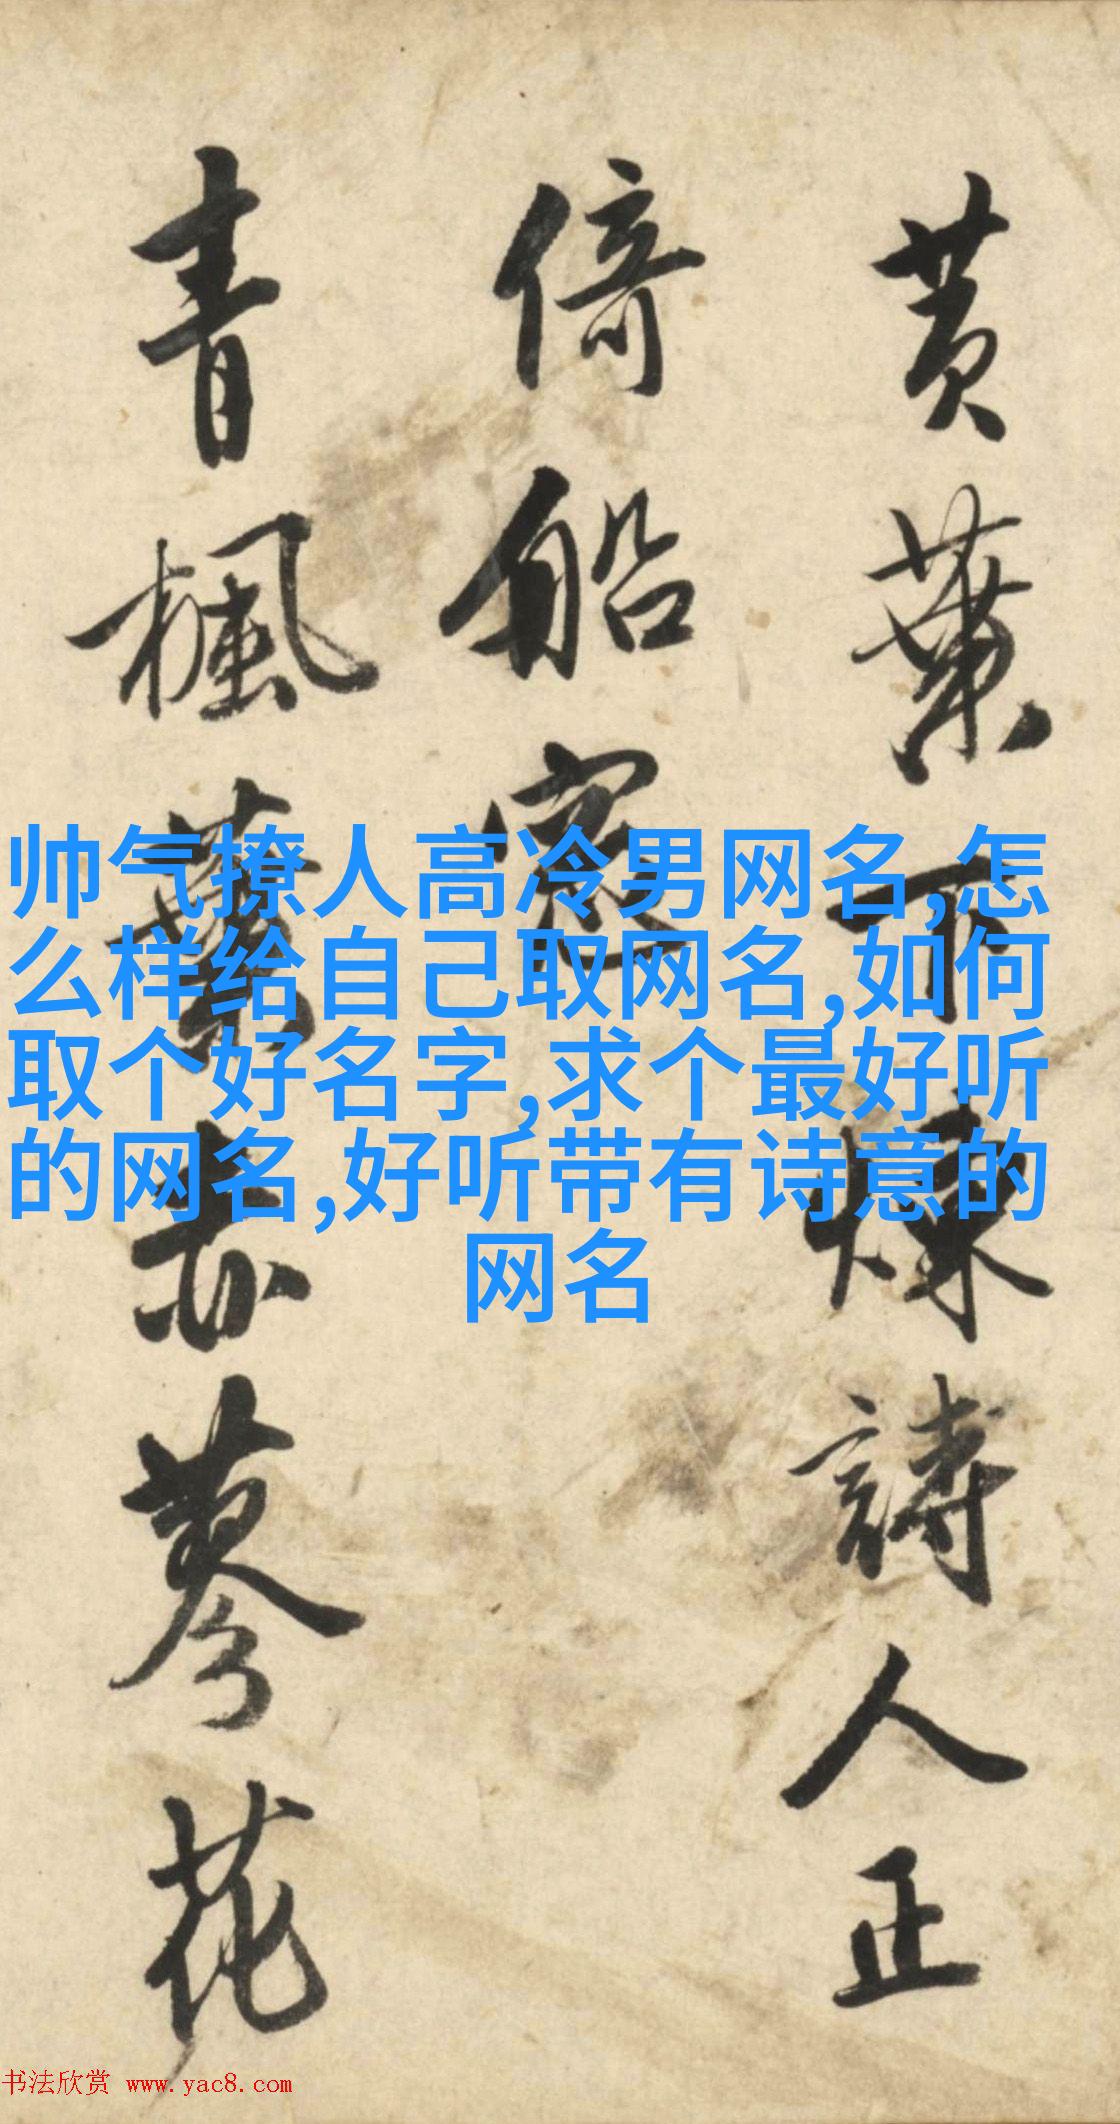 黄葉下詩人正
倚船窓
青楓葉赤蓼花
帅气撩人高冷男网名,怎
么样给自己取网名,如何
取个好名字,求个最好听
的网名,好听带有诗意的
网名
书法欣赏 www.yac8.com